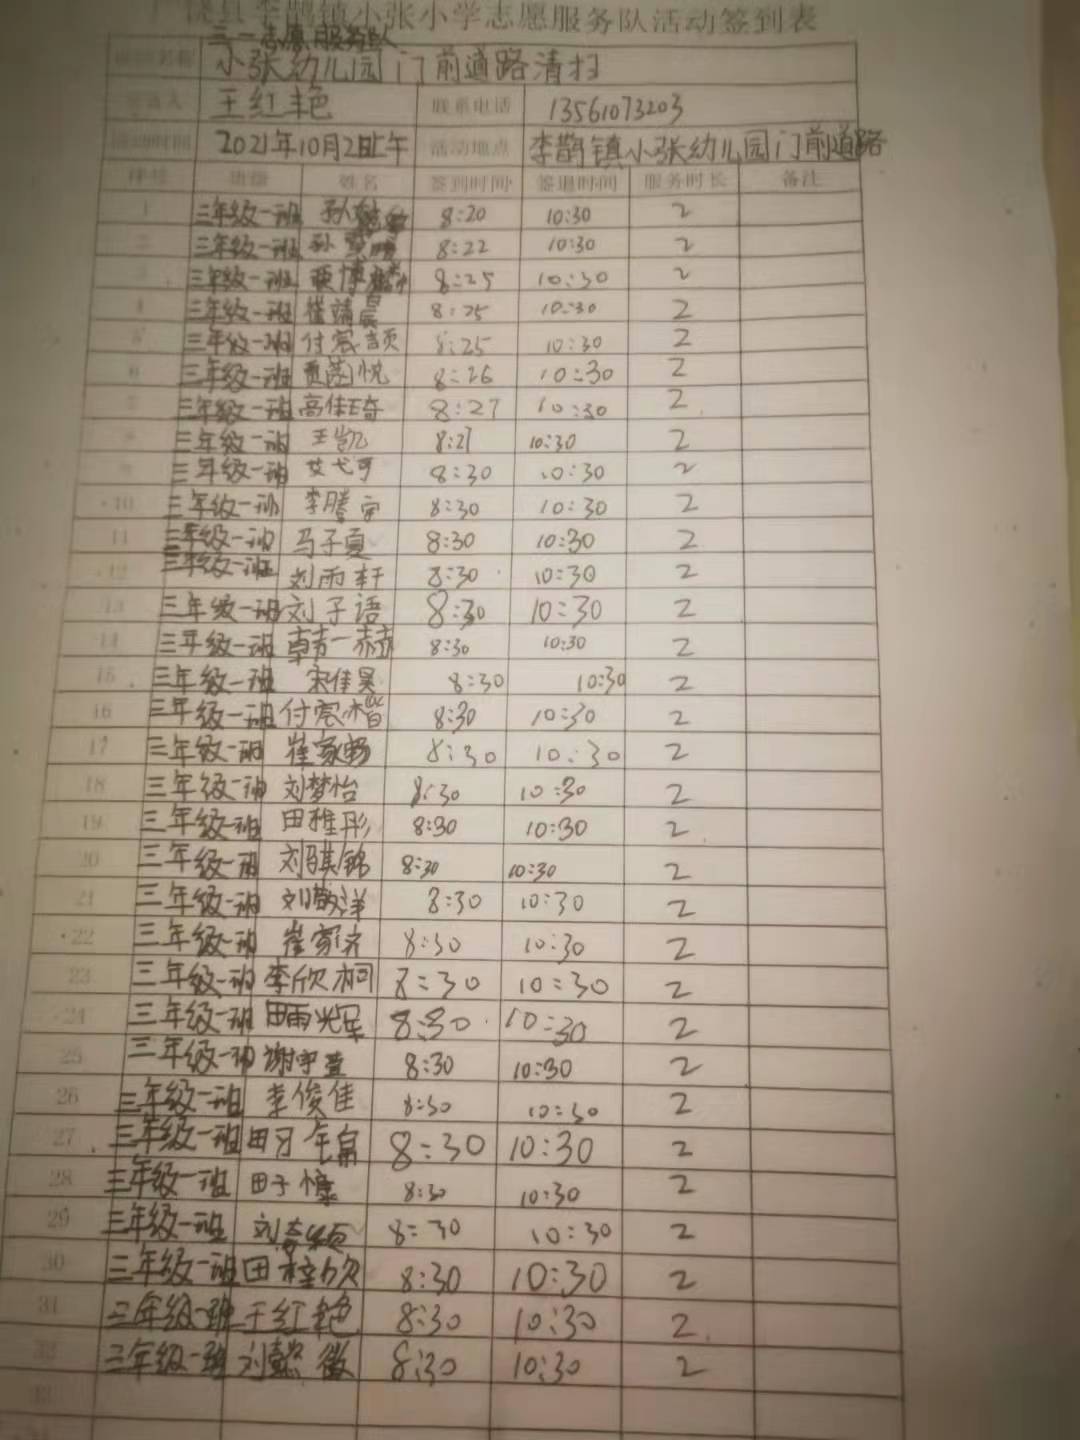 广饶县李鹊镇小张小学志愿服务队活动签到表
三一志愿服务队
小张幼儿园门前道路清扫
王红艳 联系电话 13561073203
活动时间 2021年10月2日上午 活动地点 李鹊镇小张幼儿园门前道路
序号 班级 姓名 签到时间 签退时间 服务时长 备注
1 三年级一班 孙 8:20 10:30 2
2 三年级一班 孙 8:22 10:30 2
3 三年级一班 博 8:25 10:30 2
4 三年级一班 崔靖晨 8:25 10:30 2
5 三年级一班 付宸颉 8:25 10:30 2
6 三年级一班 贾茜悦 8:26 10:30 2
7 三年级一班 高佳琦 8:27 10:30 2
8 三年级一班 王凯 8:27 10:30 2
9 三年级一班 艾弋可 8:30 10:30 2
10 三年级一班 李腾宇 8:30 10:30 2
11 三年级一班 马子夏 8:30 10:30 2
12 三年级一班 刘雨轩 8:30 10:30 2
13 三年级一班 刘子语 8:30 10:30 2
14 三年级一班 韩一赫 8:30 10:30 2
15 三年级一班 宋佳昊 8:30 10:30 2
16 三年级一班 付宸楷 8:30 10:30 2
17 三年级一班 崔家畅 8:30 10:30 2
18 三年级一班 刘梦怡 8:30 10:30 2
19 三年级一班 田雅彤 8:30 10:30 2
20 三年级一班 刘骐锦 8:30 10:30 2
21 三年级一班 刘敬洋 8:30 10:30 2
22 三年级一班 崔家齐 8:30 10:30 2
23 三年级一班 李欣桐 8:30 10:30 2
24 三年级一班 田雨 8:30 10:30 2
25 三年级一班 谢宇萱 8:30 10:30 2
26 三年级一班 李俊佳 8:30 10:30 2
27 三年级一班 田 8:30 10:30 2
28 三年级一班 田子慷 8:30 10:30 2
29 三年级一班 刘 8:30 10:30 2
30 三年级一班 田梓欣 8:30 10:30 2
31 三年级一班 王红艳 8:30 10:30 2
32 三年级一班 刘懿徵 8:30 10:30 2
33